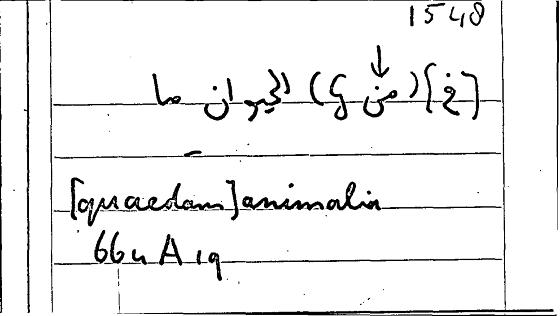 1548
من الحيوان ما
[quaedam] animalia
664 A 19